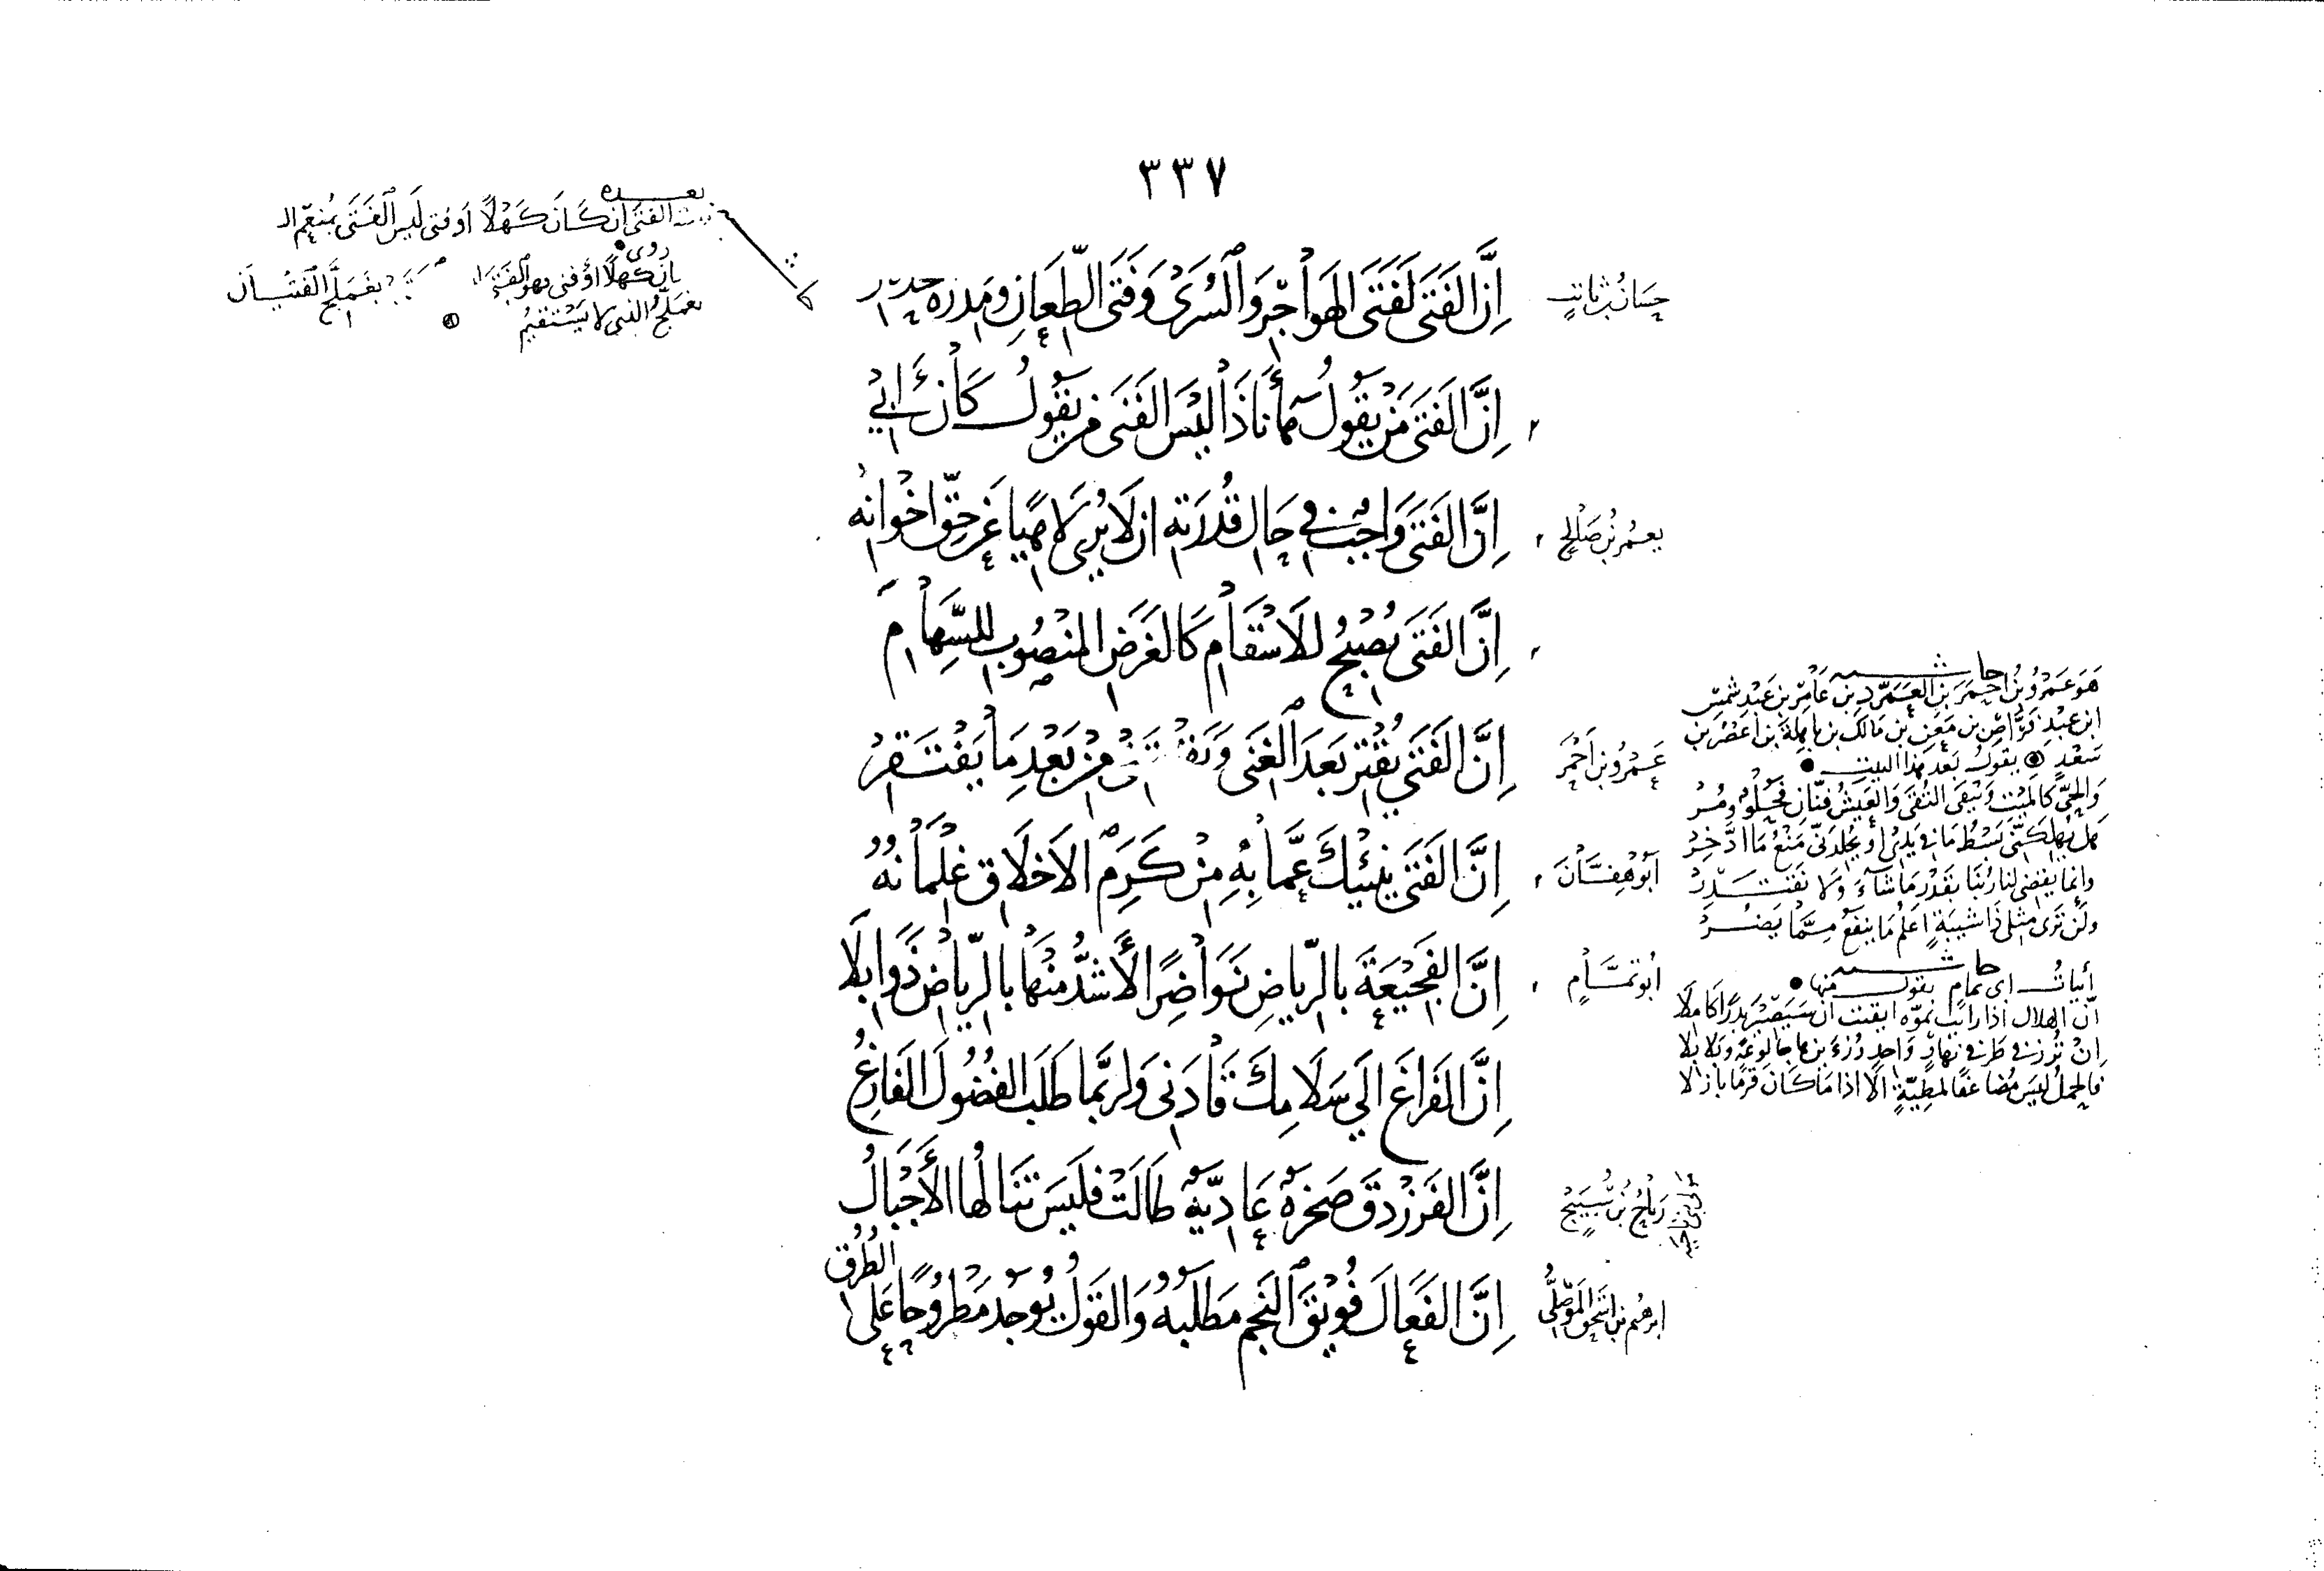 ٣٣٧
بعده
الفتى ان كَانَ كَهْلًا اَوْ فتى لَيسَ الفَتَى بمُنعّم
روى
كهلًا اوْ فتى
بغَملّج الفتْيَان
بغملّج الذى لا يَسْتقيمُ
حسّان بن ثابتٍ
اِنَّ الفَتَى لَفَتَى الهَواجْرِ وَالسُرَىْ وَفَتَى الطّعَانِ ومدره
اِنَّ الفَتَى مَنْ يَقولُ هَا أَنا ذَا ليْسَ الفَتَى مَن يَقُولُ كَانَ اَبيْ
يعمُر بنُ صَالحٍ
اِنَّ الفَتَى وَاجبٌ في حَال قُدرَته ان لَا يُرى لاهيًا عَن حقّ اخْوانهُ
اِنَّ الفَتَى يُصْبحُ للاَسْقَام كَالغَرَض المنْصُوب للسِّهَام
عَمرُو بن اَحْمَرَ
اِنَّ الفَتَى يُقْتر بَعدَ الغنَى وَيَغْتَنى منْ بَعْدِ مَا يَفْتَقرْ
اَبُو هِفَّانَ
اِنَّ الفَتَى ينْبئكَ عَمَّا بهِ منْ كَرَم الاَخلَاق غلْمَانهُ
اَبُو تمَّامٍ
اِنَّ الفَجيْعَةَ بالرّيَاضِ نَوَاضِرًا لأَشدُّ منْهَا بالرّيَاض ذَوَابلَا
اِنَّ الفَرَاغَ الَي سَلَامِكَ قَادَنى وَلرُبَّما طَلَبَ الفُضُولَ الفَارغُ
رَبَاحُ بنُ سُبَيْحٍ
اِنَّ الفَرَزْدقَ صَخرَةٌ عَاديّةٌ طَالَتْ فلَيسَ تنَالُها الأَجْبَالُ
ابرهيم بن اسْحق الموصلىُّ
اِنَّ الفَعَالَ فُوَيْقَ النَجم مَطلَبُهُ وَالقَوْلُ يُوجَدُ مَطْرُوحًا عَلى
الطُرُق
حاشيه
هوَ عَمرُو بنُ احْمَرَ بنِ العَمَرَّد بن عَامر بن عَبْدِ شمسِ
ابن عبْدِ بن فَرّاصِ بن مَعَن بن مَالك بن باهِلَةَ بن اعْصُرَ بن
سَعْدٍ يقولُ بَعد هذا البيت
وَالحىُّ كالميْت وَيَبْقَى التُقَى وَالعَيْشُ فنّان فحُلْوٌ ومُرْ
هَل يُهلكنّى بَسْطُ مَا في يَدى اَو يُخلدَنّى مَنْعُ مَا ادَّخرْ
وانما يقضى لنا ربّنا بقَدْر مَا شَاءَ ولا نَقتَدِرْ
ولَن ترى مثلى ذَا شيبَةٍ اعلَمُ مَا ينفَعُ ممَّا يَضُرْ
حاشيه
أبياتُ ابى تمام يقول منها
اِنّ الهلال اذا رايتَ نموّه ايقنت ان سَيَصيْر بدرًا كاملَا
اِنْ تُرزَ في طَرفى نهَارٍ وَاحدٍ رُزءَين هاجا لوعَةً وبَلابلا
فالحملُ ليسَ مُضاعَفًا لمطيّةٍ الّا اذا مَا كَانَ قَرمًا بازلا